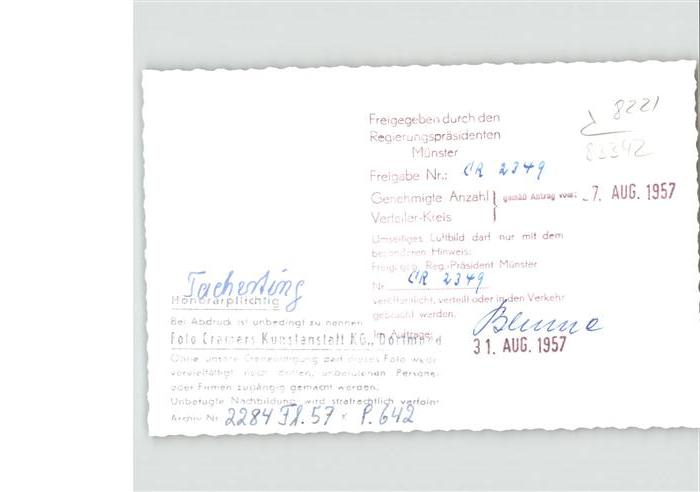 8221
83342
Freigegeben durch den
Regierungspräsidenten
Münster
Freigabe Nr.: CR 2349
Genehmigte Anzahl } gemäß Antrag vom: -7. AUG. 1957
Verteiler-Kreis
Umseitiges Luftbild darf nur mit dem
besonderen Hinweis:
Freigeg. Reg.-Präsident Münster
Nr. CR 2349
veröffentlicht, verteilt oder in den Verkehr
gebracht werden.
Im Auftrage:
31. AUG. 1957
Tacherting
Honorarpflichtig
Bei Abdruck ist unbedingt zu nennen
Foto Cramers Kunstanstalt KG., Dortmund
Ohne unsere Genehmigung darf dieses Foto weder
vervielfältigt noch dritten, unberufenen Personen
oder Firmen zugängig gemacht werden.
Unbefugte Nachbildung wird strafrechtlich verfolgt
Archiv Nr. 2284 Fl. 57 x P. 642